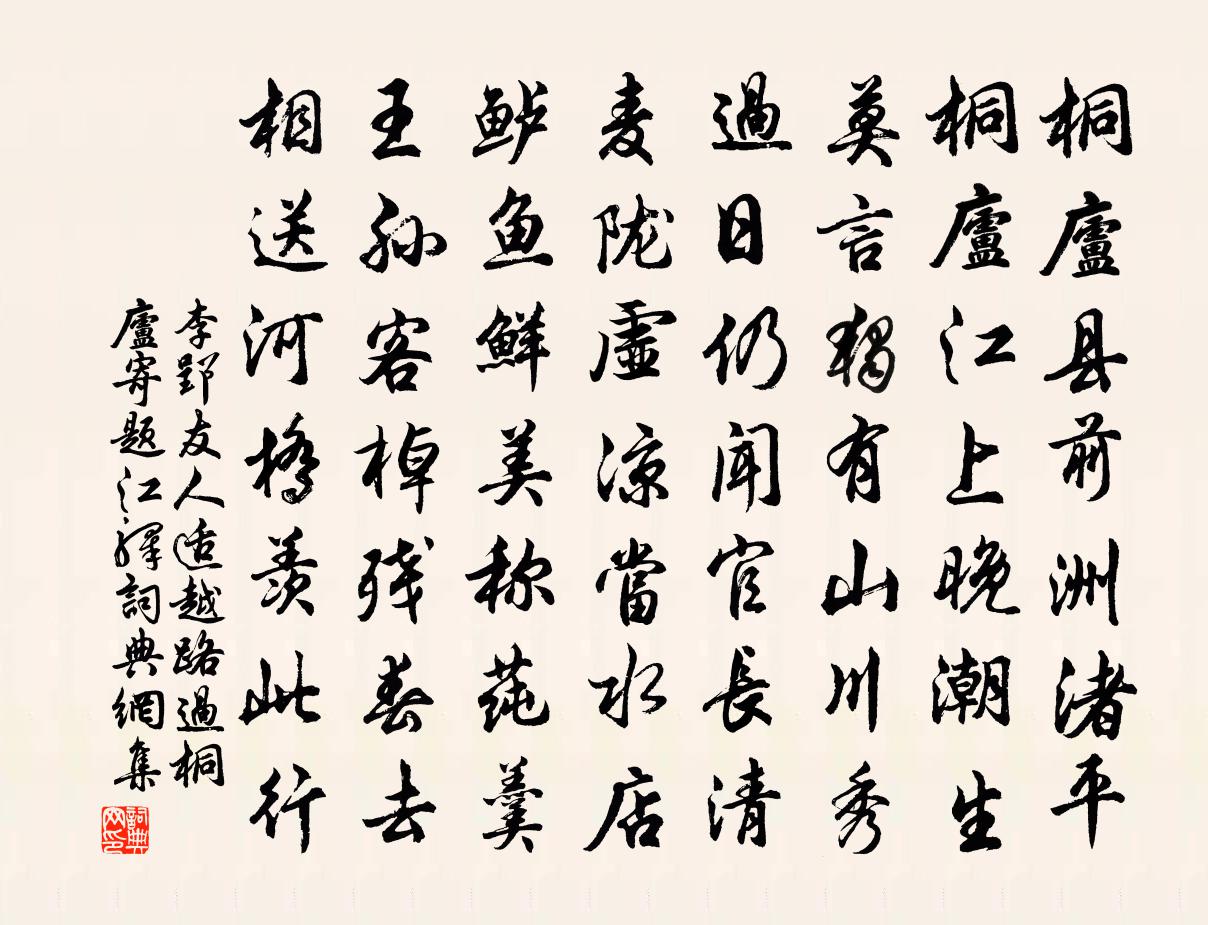 桐廬县前洲渚平
桐廬江上晚潮生
莫言獨有山川秀
過日仍闻官長清
麦陇虛涼當水店
鲈鱼鮮美称莼羹
王孙客棹残春去
相送河橋羨此行
李郢友人适越路過桐
廬寄题江驛詞典網集
詞典
网印